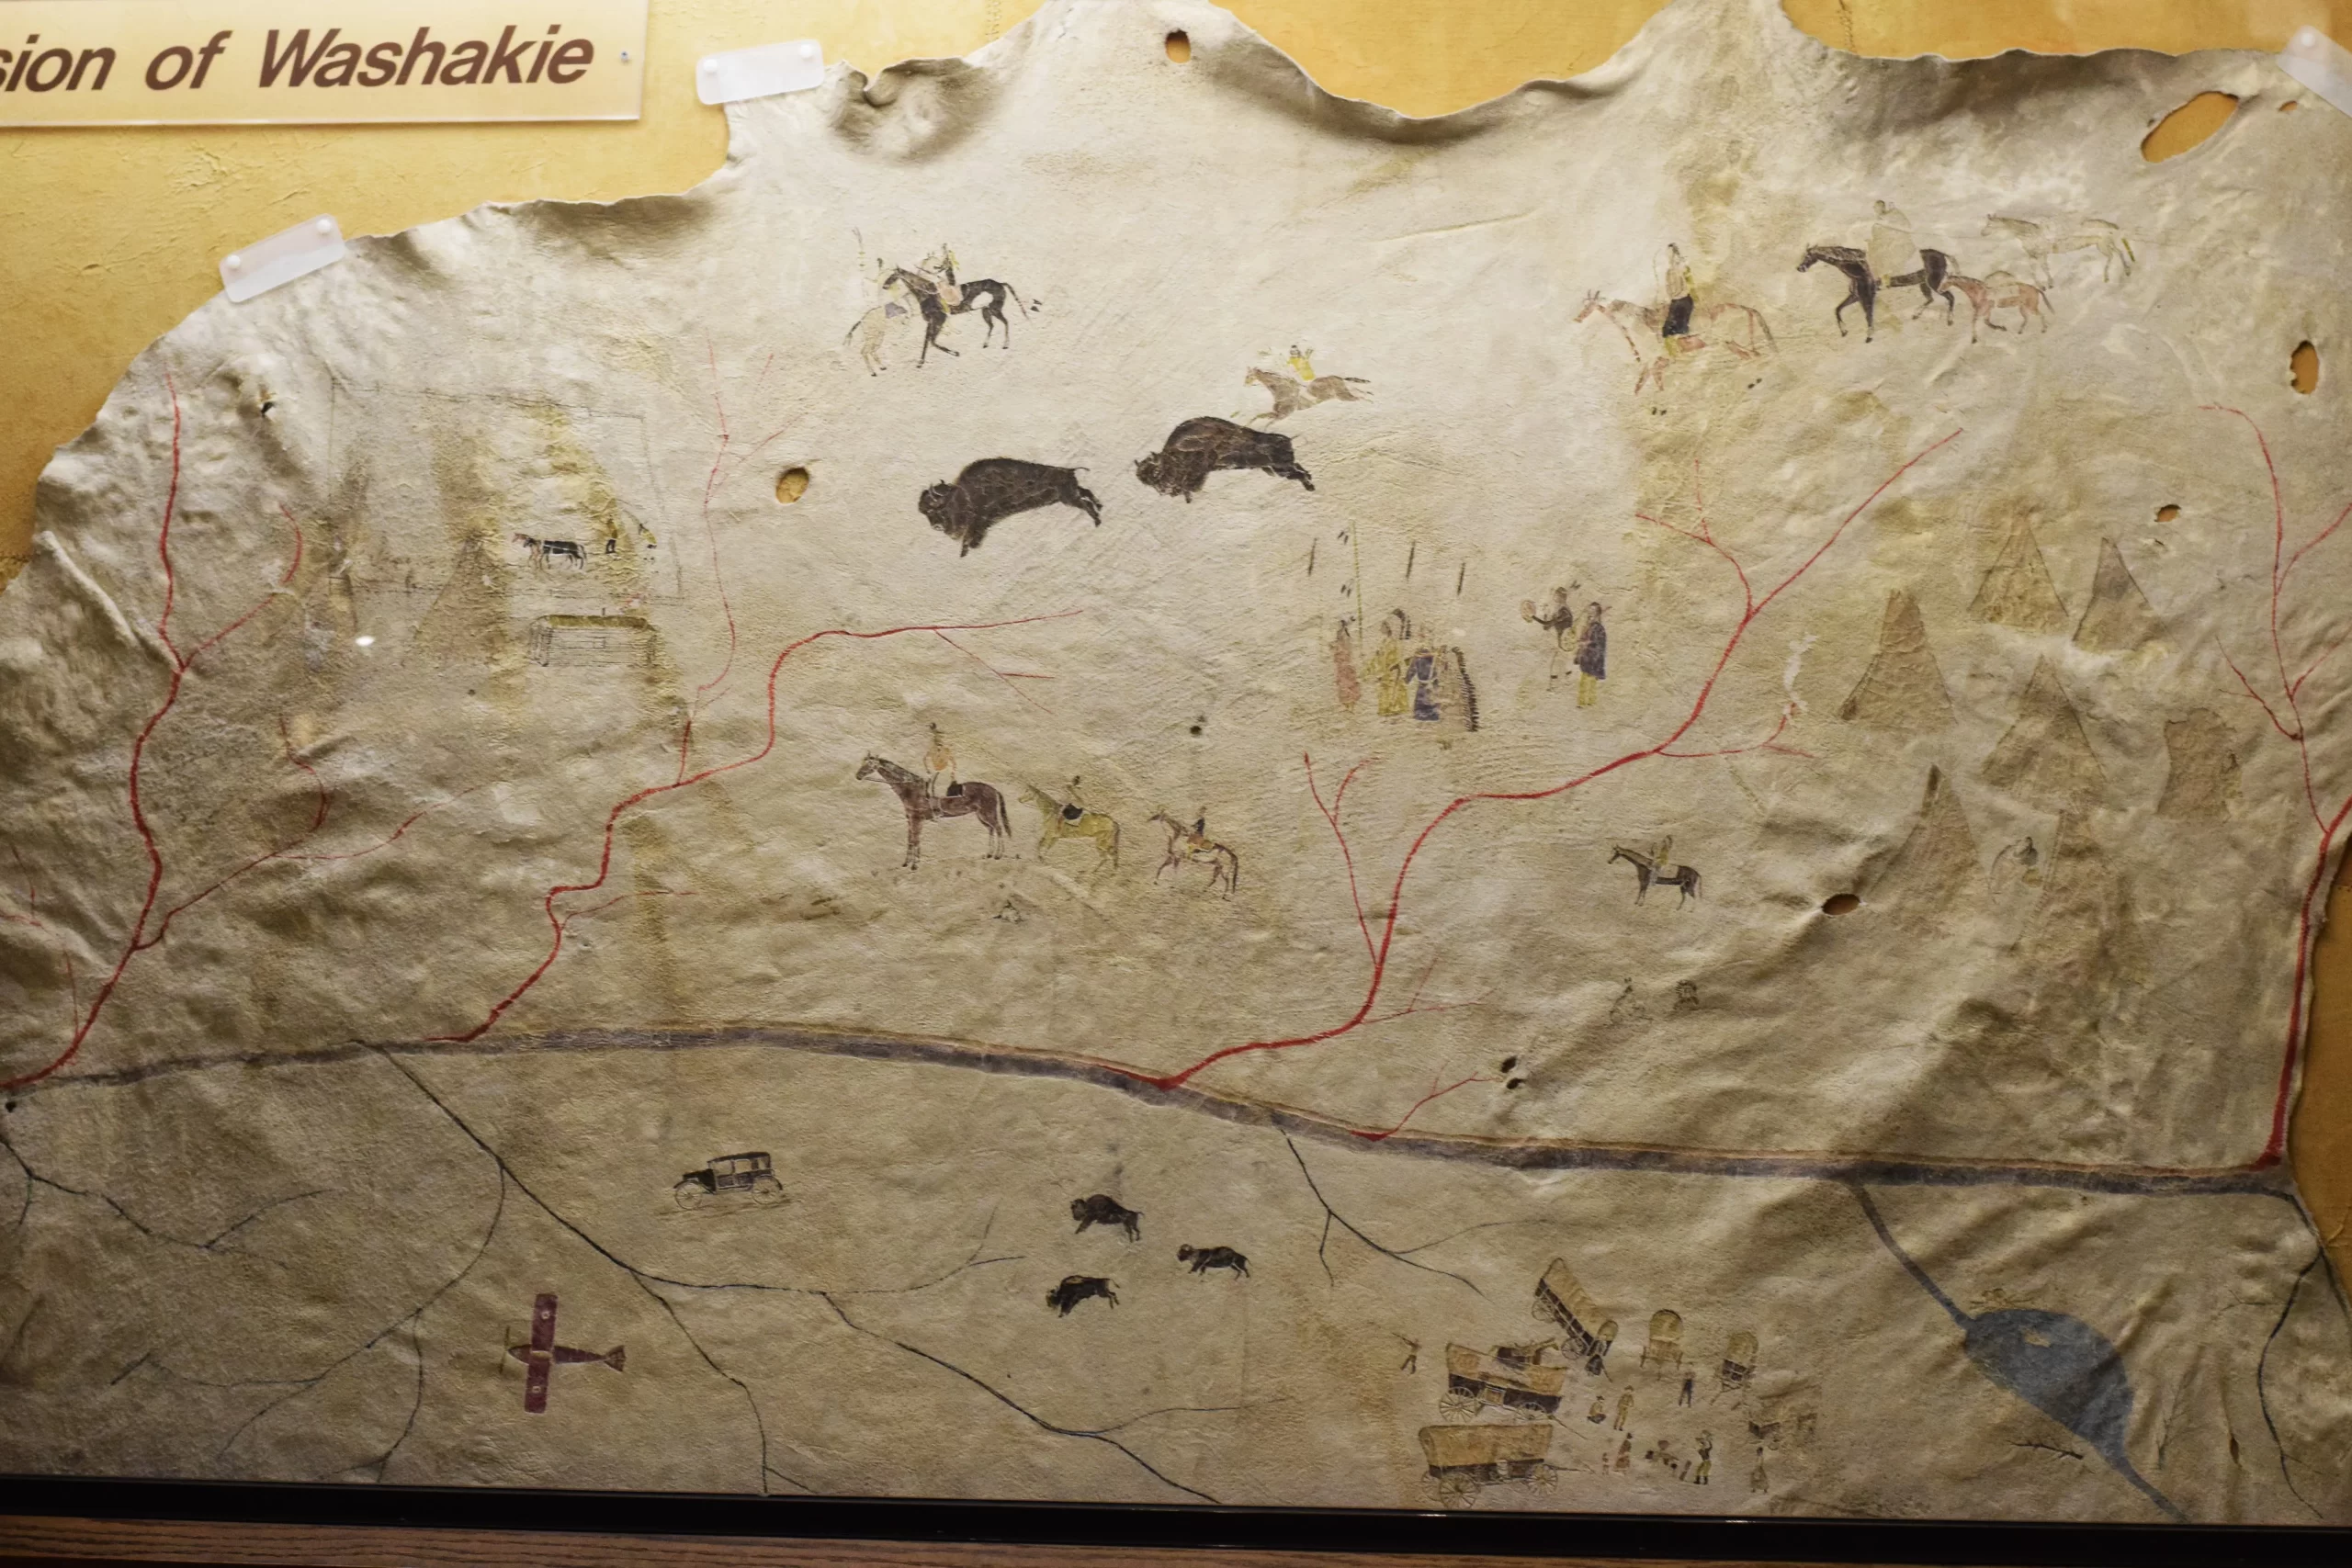 sion of Washakie